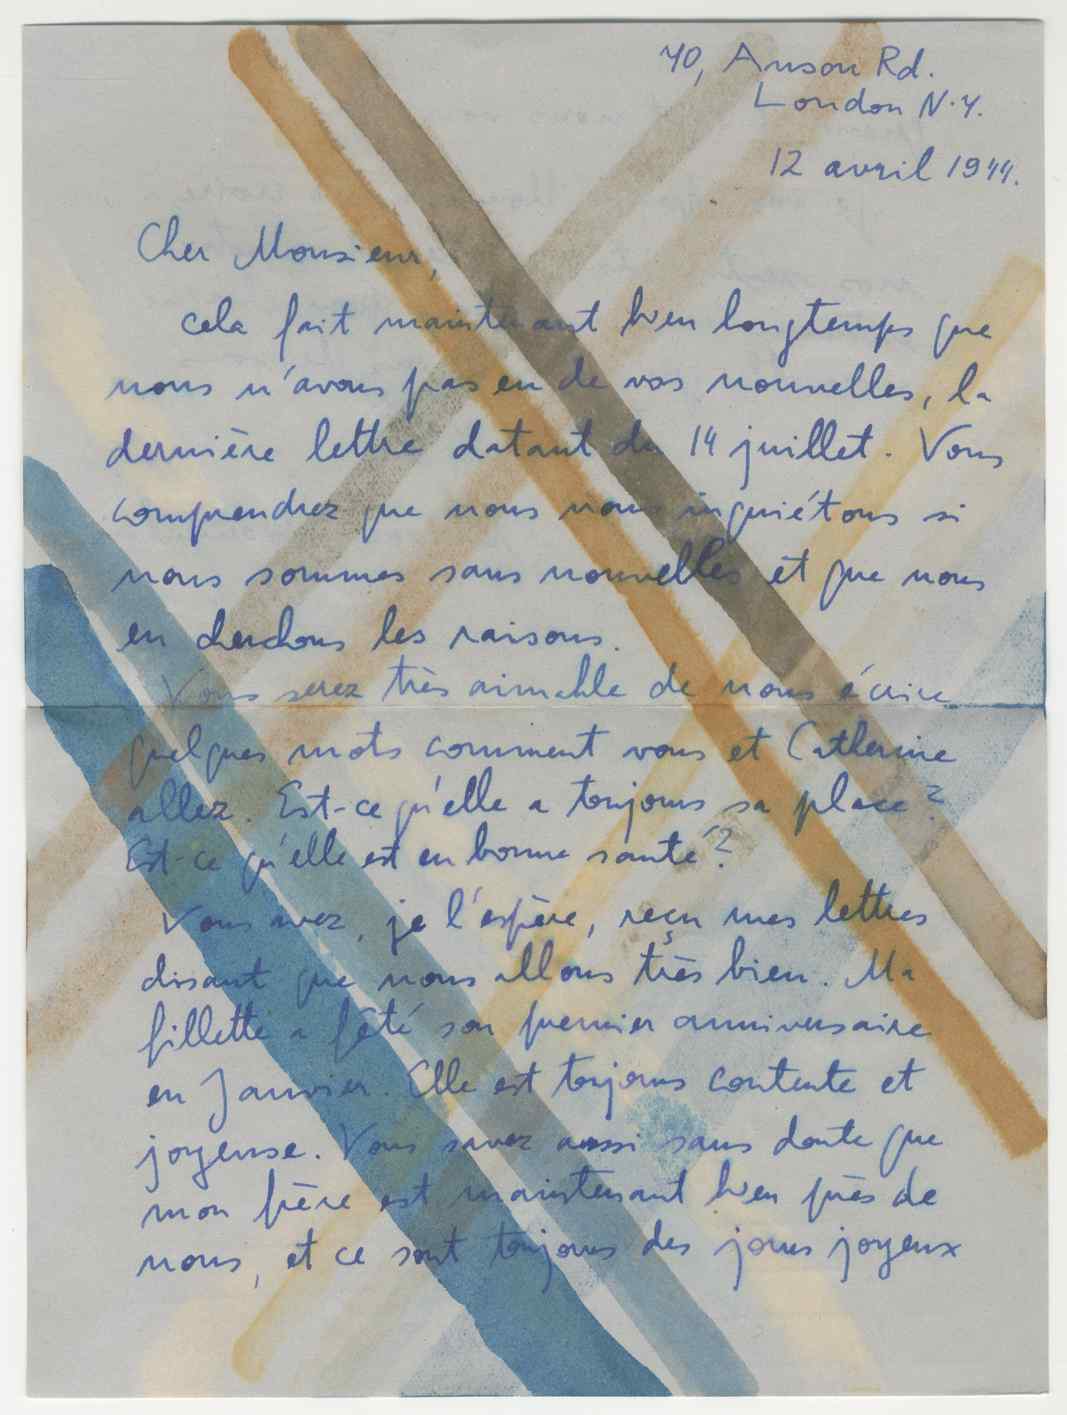 70, Anson Rd.
London N.7.
12 avril 1944.
Cher Monsieur,
cela fait maintenant bien longtemps que
nous n'avons pas eu de vos nouvelles, la
dernière lettre datant du 14 juillet. Vous
comprendrez que nous nous inquiétons si
nous sommes sans nouvelles et que nous
en cherchons les raisons.
Vous serez très aimable de nous écrire
quelques mots comment vous et Catherine
allez. Est-ce qu'elle a toujours sa place?
Est-ce qu'elle est en bonne santé?
Vous avez, je l'espère, reçu mes lettres
disant que nous allons très bien. Ma
fillette a fêté son premier anniversaire
en Janvier. Elle est toujours contente et
joyeuse. Vous savez aussi sans doute que
mon frère est maintenant bien près de
nous, et ce sont toujours des jours joyeux